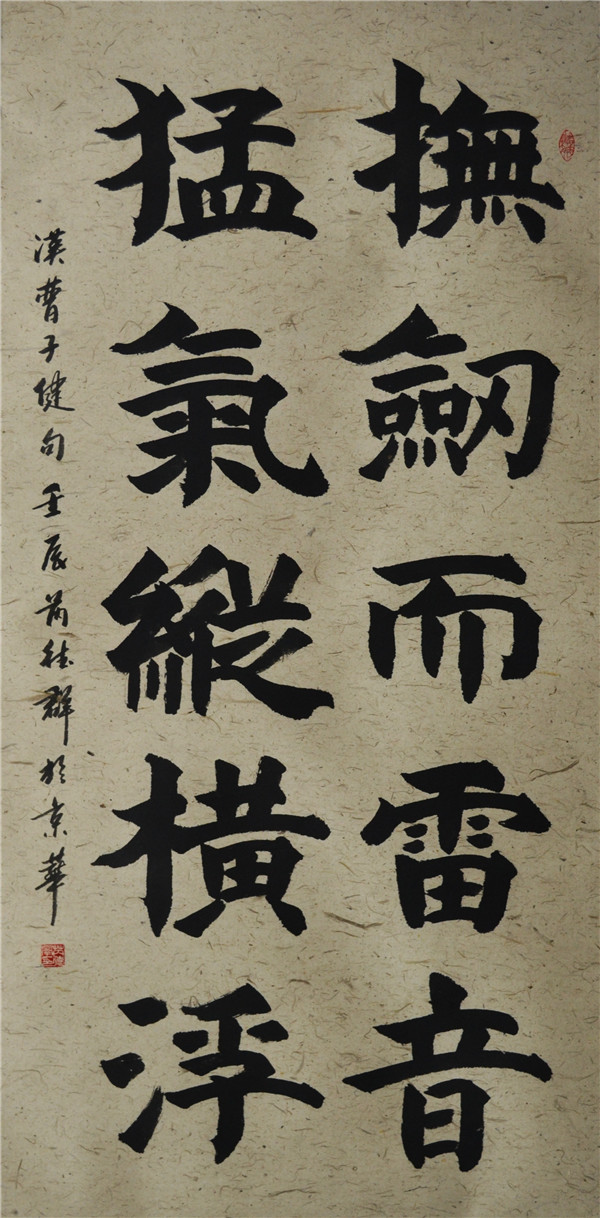 撫劒而雷音
猛氣縱橫浮
漢曹子健句壬辰苪德群於京華